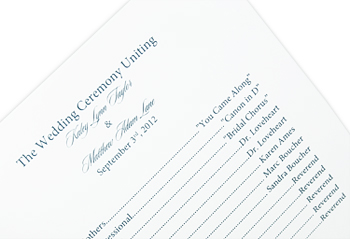 The Wedding Ceremony Uniting
Kaley Lynn Taylor
&
Matthew Adam Lane
September 3rd, 2012
"You Came Along"
"Canon in D"
"Bridal Chorus"
Dr. Loveheart
Dr. Loveheart
Karen Ames
Marc Boucher
Sandra Boucher
Reverend
Reverend
others
essional
Reverend
Reverend